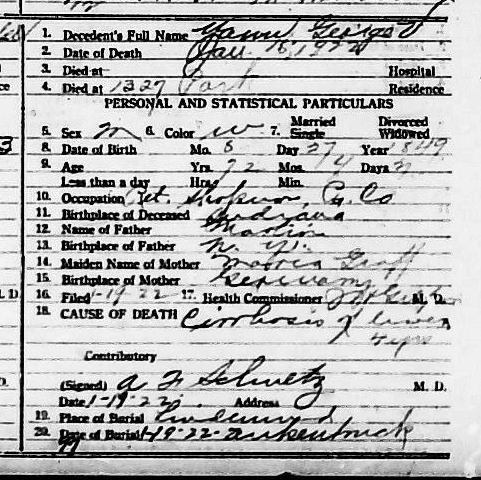 1. Decedent's Full Name George
2. Date of Death Jan 16, 1922
3. Died at Hospital
4. Died at 1327 Park Residence
PERSONAL AND STATISTICAL PARTICULARS
Married Divorced
5. Sex M 6. Color W 7. Single Widowed
8. Date of Birth Mo. 8 Day 27 Year 1849
9. Age Yrs. 72 Mos. 4 Days
Less than a day Hrs. Min.
10. Occupation Ret. Co
11. Birthplace of Deceased Indiana
12. Name of Father Martin
13. Birthplace of Father N. Y.
14. Maiden Name of Mother Graff
15. Birthplace of Mother Germany
16. Filed 1-19-22 17. Health Commissioner M. D.
18. CAUSE OF DEATH Cirrhosis of liver
4 yrs
Contributory
(Signed) A F Schultz M. D.
Date 1-19-22 Address
19. Place of Burial Lindenwood
20. Date of Burial 1-19-22